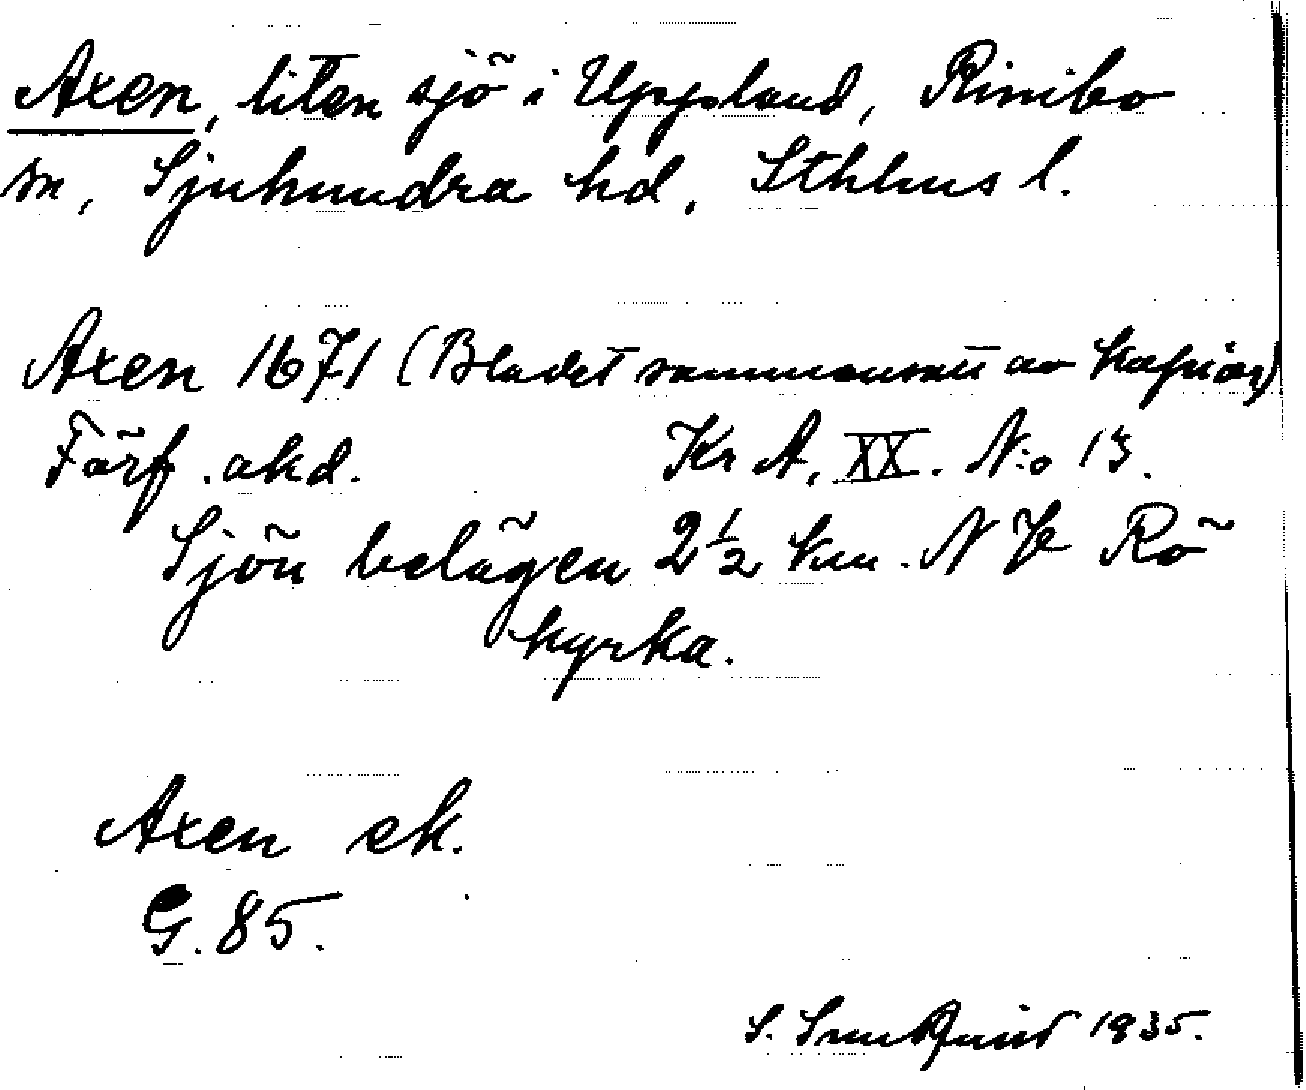 Axen, liten sjö i Uppland, Rimbo
sn, Sjuhundra hd, Sthlms l.
Axen 1671 (Bladet sammansatt av kopior)
Förf. okd. Kr A, XX. N:o 13.
Sjön belägen 2½ km. NV Rö
kyrka.
Axen ek.
G. 85.
S. 1935.